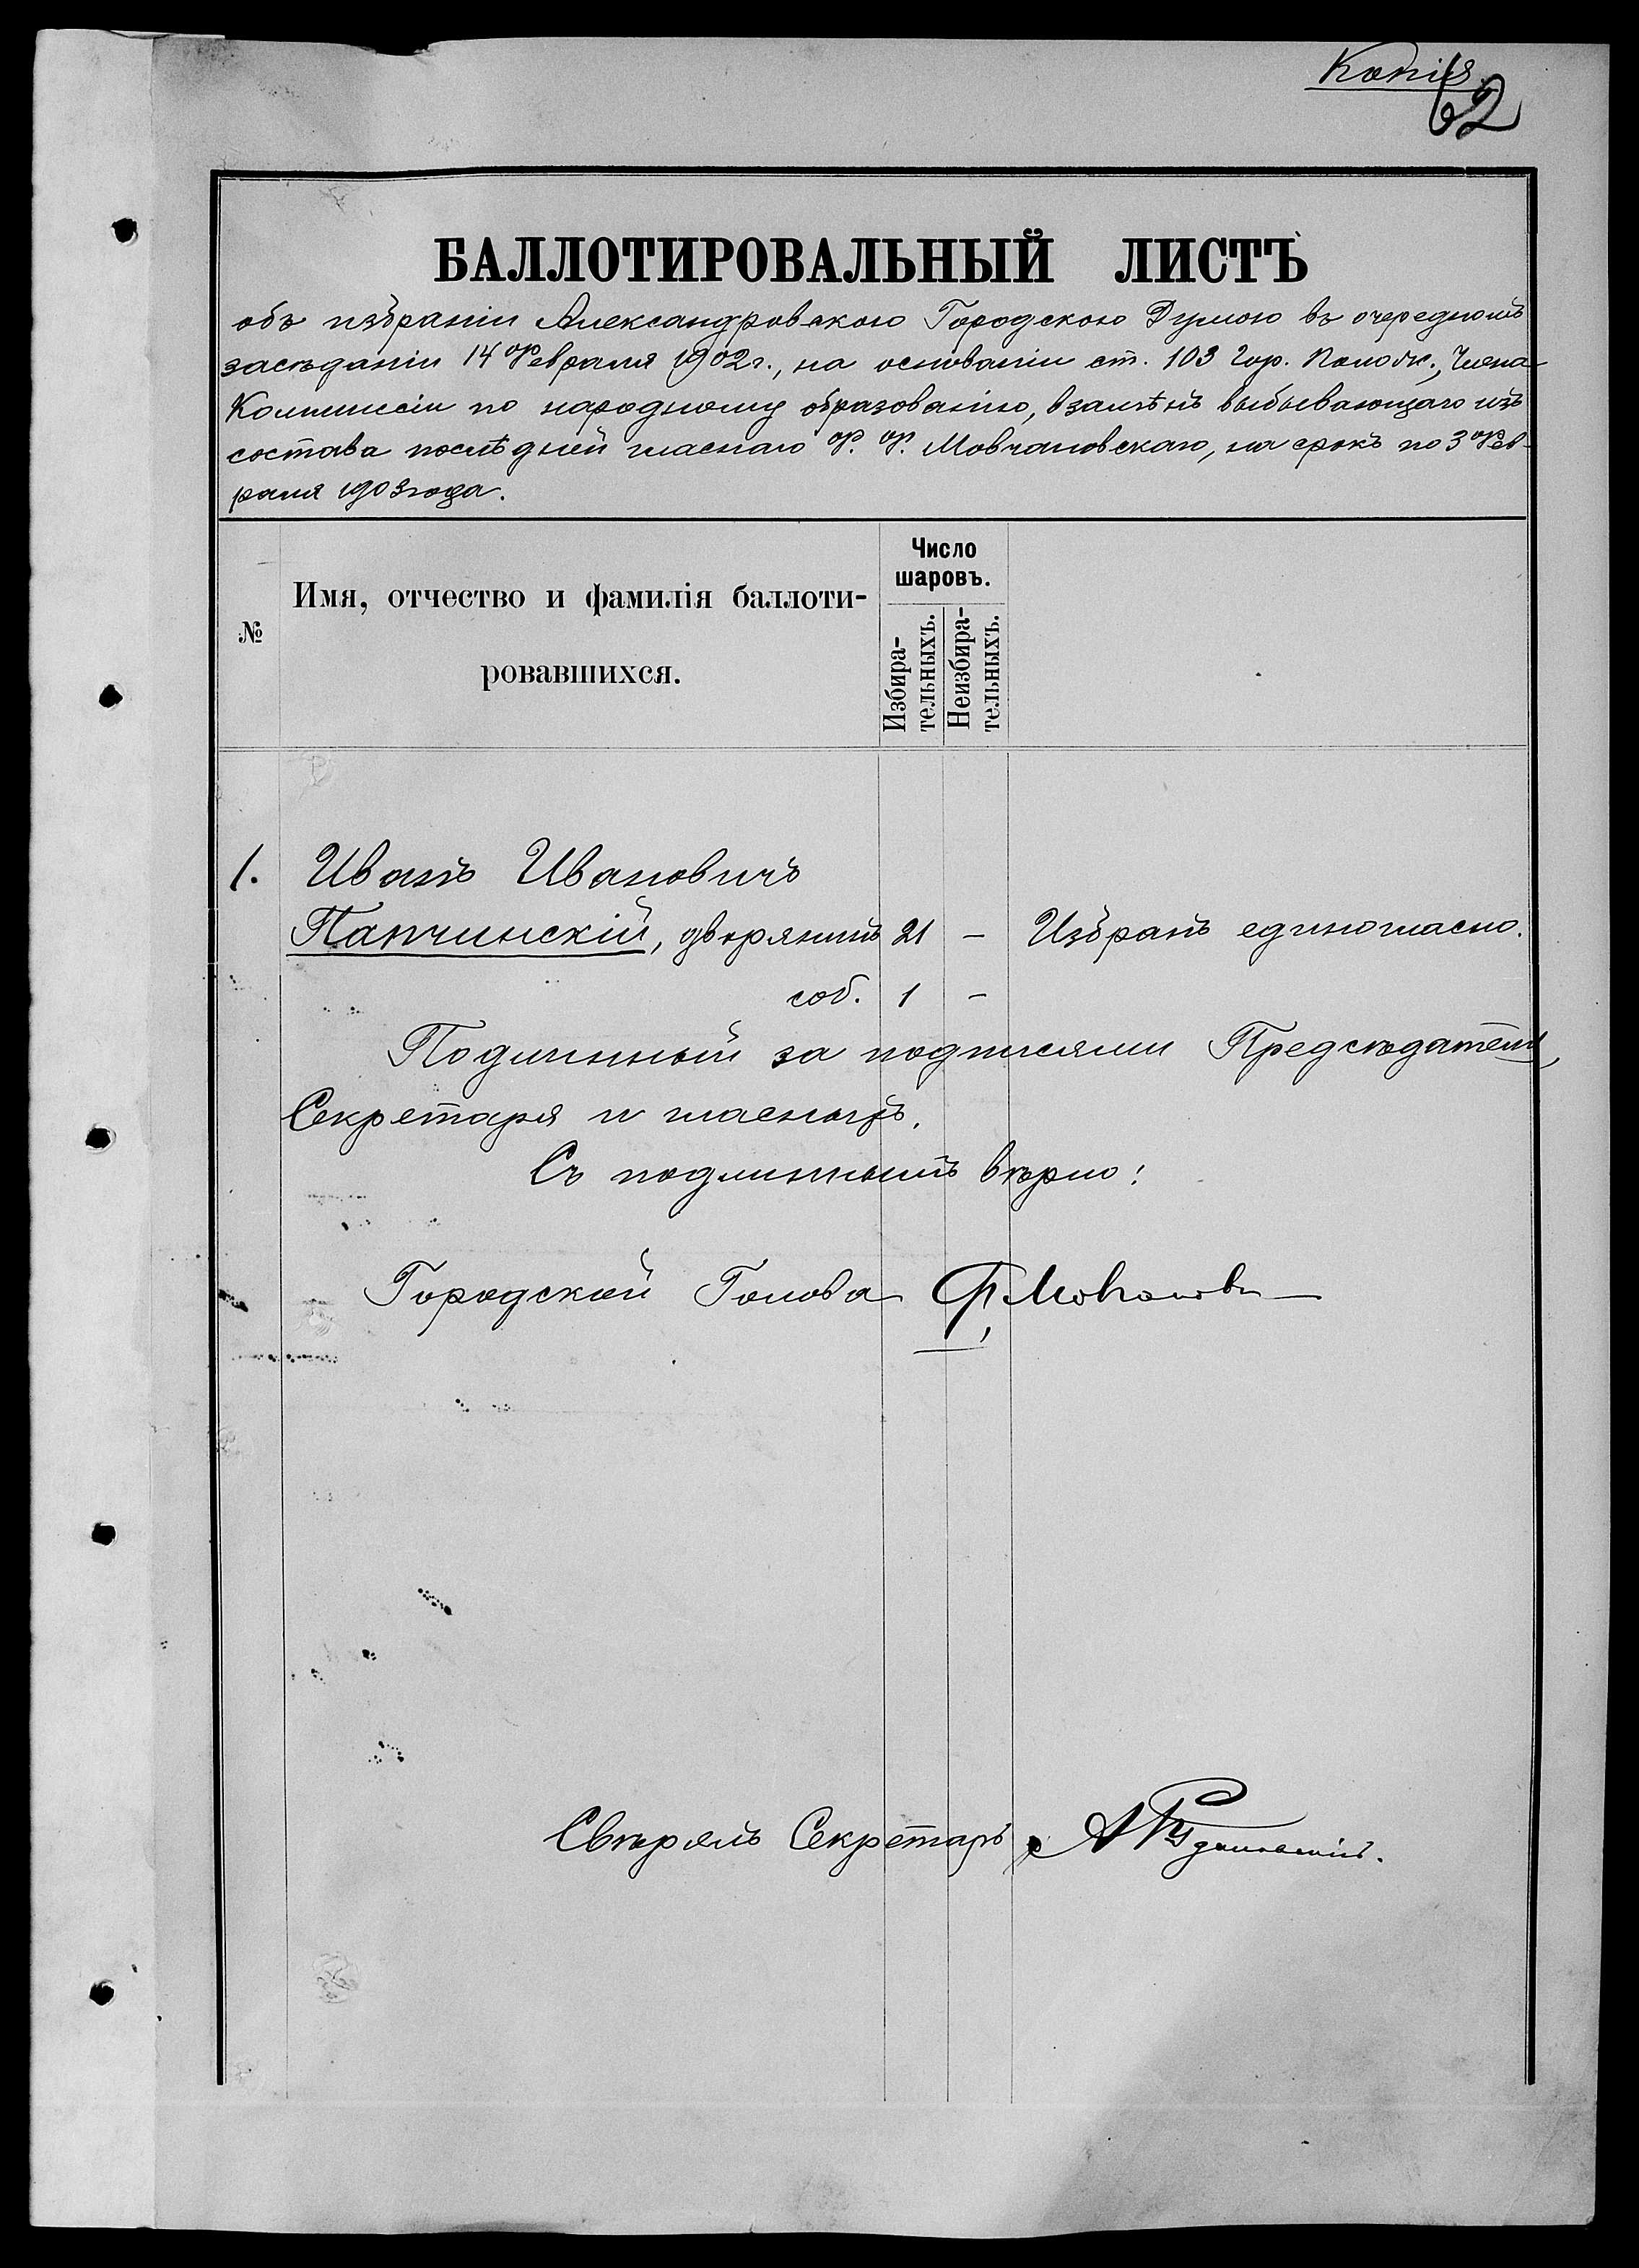 Копія
62
БАЛЛОТИРОВАЛЬНЫЙ ЛИСТЪ
объ избраніи Александровскою Городскою Думою въ очередномъ
засѣданіи 14 Февраля 1902 г., на основаніи ст. 103 Гор. Полож., Члена
Коммиссіи по народному образованію, взамѣнъ выбывающаго изъ
состава послѣдней гласнаго Ф. Ф. Мовчановскаго, на срокъ по 3 Фев-
раля 1903 года.
№
Имя, отчество и фамилія баллоти-
ровавшихся.
Число
шаровъ.
Избира-
тельныхъ.
Неизбира-
тельныхъ.
1. Иванъ Ивановичъ
Папчинскій, дворянинъ 21 – Избранъ единогласно.
соб. 1 –
Подлинный за подписями Предсѣдателя,
Секретаря и гласныхъ.
Съ подлиннымъ вѣрно:
Городской Голова Ф. Мовчановск
Свѣрялъ Секретарь А